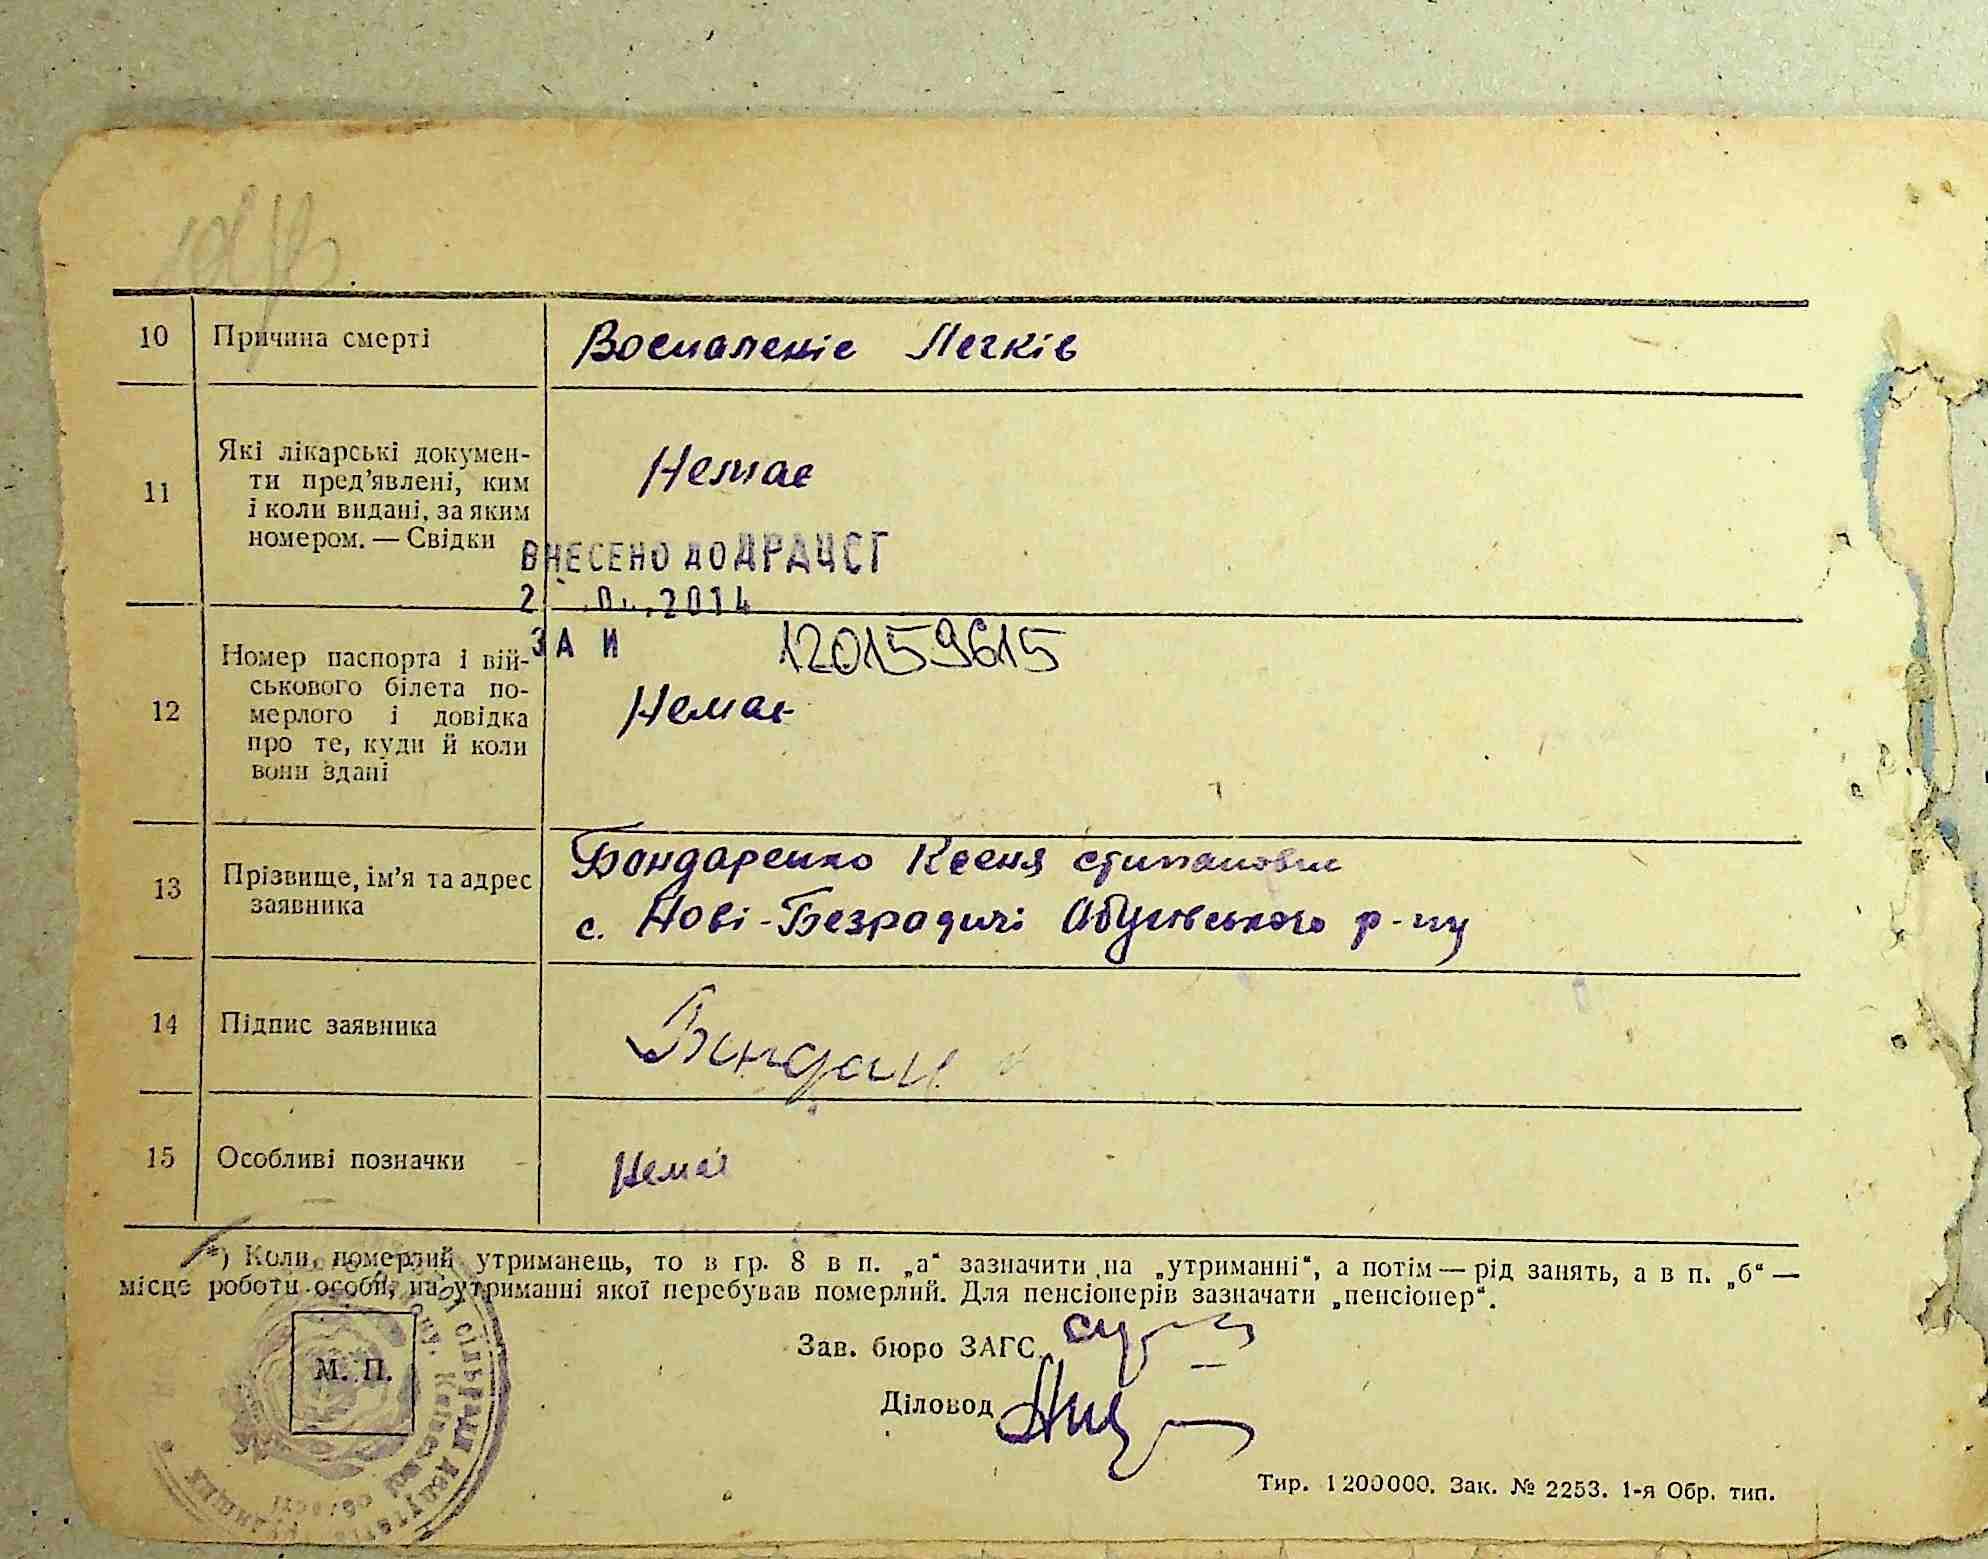 10 Причина смерті Воспаленіе Легків
11 Які лікарські докумен-
ти пред'явлені, ким
і коли видані, за яким
номером. — Свідки
Немає
ВНЕСЕНО ДО ДРАЦСГ
2014
ЗА И 120159615
12 Номер паспорта і вій-
ськового білета по-
мерлого і довідка
про те, куди й коли
вони здані
Немає
13 Прізвище, ім'я та адрес
заявника
Бондаренко Ксеня
с. Нові-Безрадичі Обухівського р-ну
14 Підпис заявника
15 Особливі позначки Немає
*) Коли померлий утриманець, то в гр. 8 в п. „а“ зазначити „на „утриманні“, а потім — рід занять, а в п. „б“ —
місце роботи особи, на утриманні якої перебував померлий. Для пенсіонерів зазначати „пенсіонер“.
М. П.
Зав. бюро ЗАГС
Діловод
Тир. 1200000. Зак. № 2253. 1-я Обр. тип.